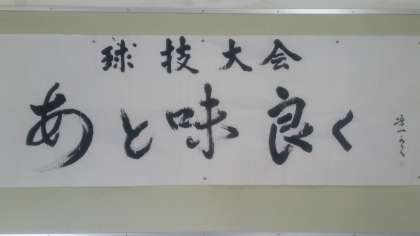 球技大会
あと味良く